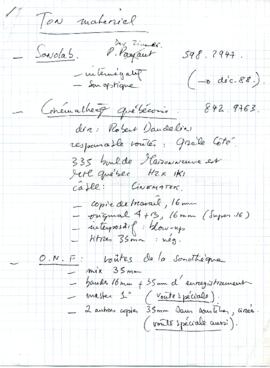 Ton matériel
- Sonolab. P. Pageau 598.2947.
- internégatif (→ déc. 88.)
- son optique
- Cinémathèque québécoise 842.9763.
dir: Robert Daudelin
responsable voûtes: Gisèle Côté
335 boul. de Maisonneuve est
Mtl Québec H2X 1K1
câble: CINEMATEK.
- copie de travail, 16mm
- original A+B, 16mm (Super-16)
- interpositif: blow-up
- titres 35mm: nég.
- O.N.F: voûtes de la sonothèque
- mix 35mm
- bandes 16mm + 35mm d'enregistrement
- master 1" (voûte spéciale)
- 2 autres copies 35mm
(voûte spéciale aussi).